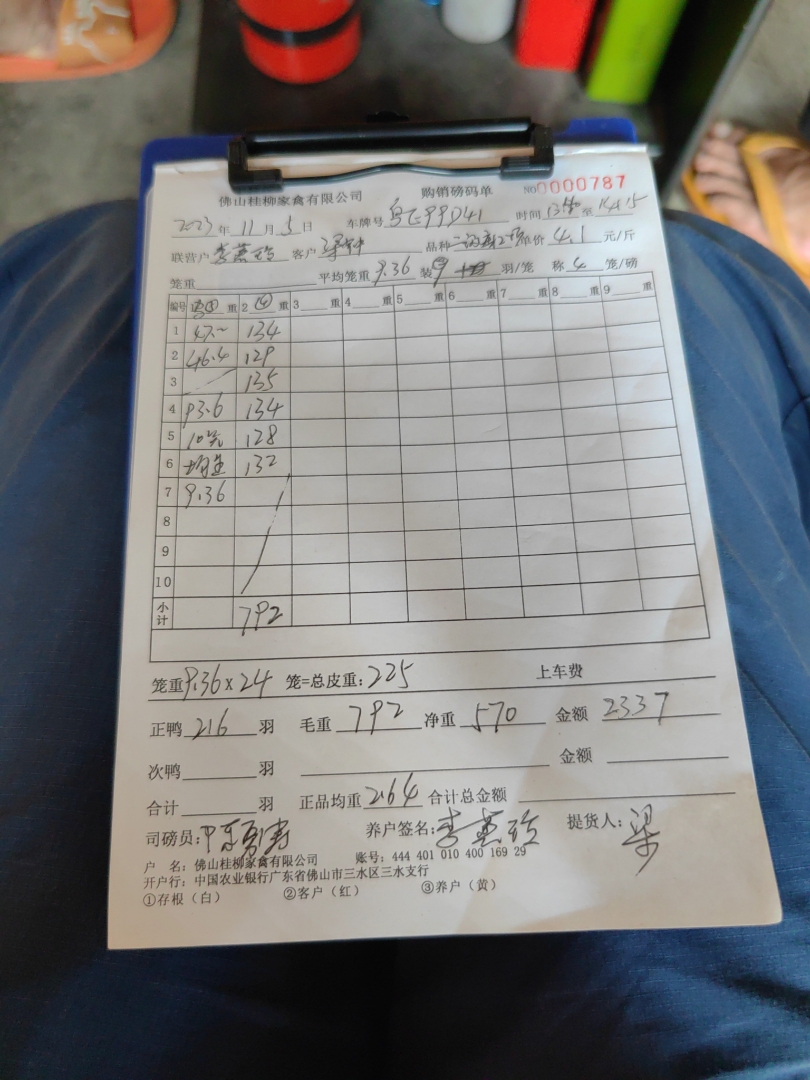 佛山桂柳家禽有限公司 购销磅码单 NO 0000787
2023年 11月 5日 车牌号 粤E99D41 时间 至 14.15
联营户 客户 品种 单价 4.1 元/斤
笼重 平均笼重 9.36 装 9 羽/笼 称 4 笼/磅
编号 1 重 2 ④ 重 3 重 4 重 5 重 6 重 7 重 8 重 9 重
1 47 134
2 46.4 129
3 135
4 93.6 134
5 10 128
6 132
7 9.36
8
9
10
小计 792
笼重 9.36×24 笼=总皮重: 225 上车费
正鸭 216 羽 毛重 792 净重 570 金额 2337
次鸭 羽 金额
合计 羽 正品均重 2.64 合计总金额
司磅员: 养户签名: 提货人: 梁
户 名: 佛山桂柳家禽有限公司 账号: 444 401 010 400 169 29
开户行: 中国农业银行广东省佛山市三水区三水支行
①存根（白） ②客户（红） ③养户（黄）